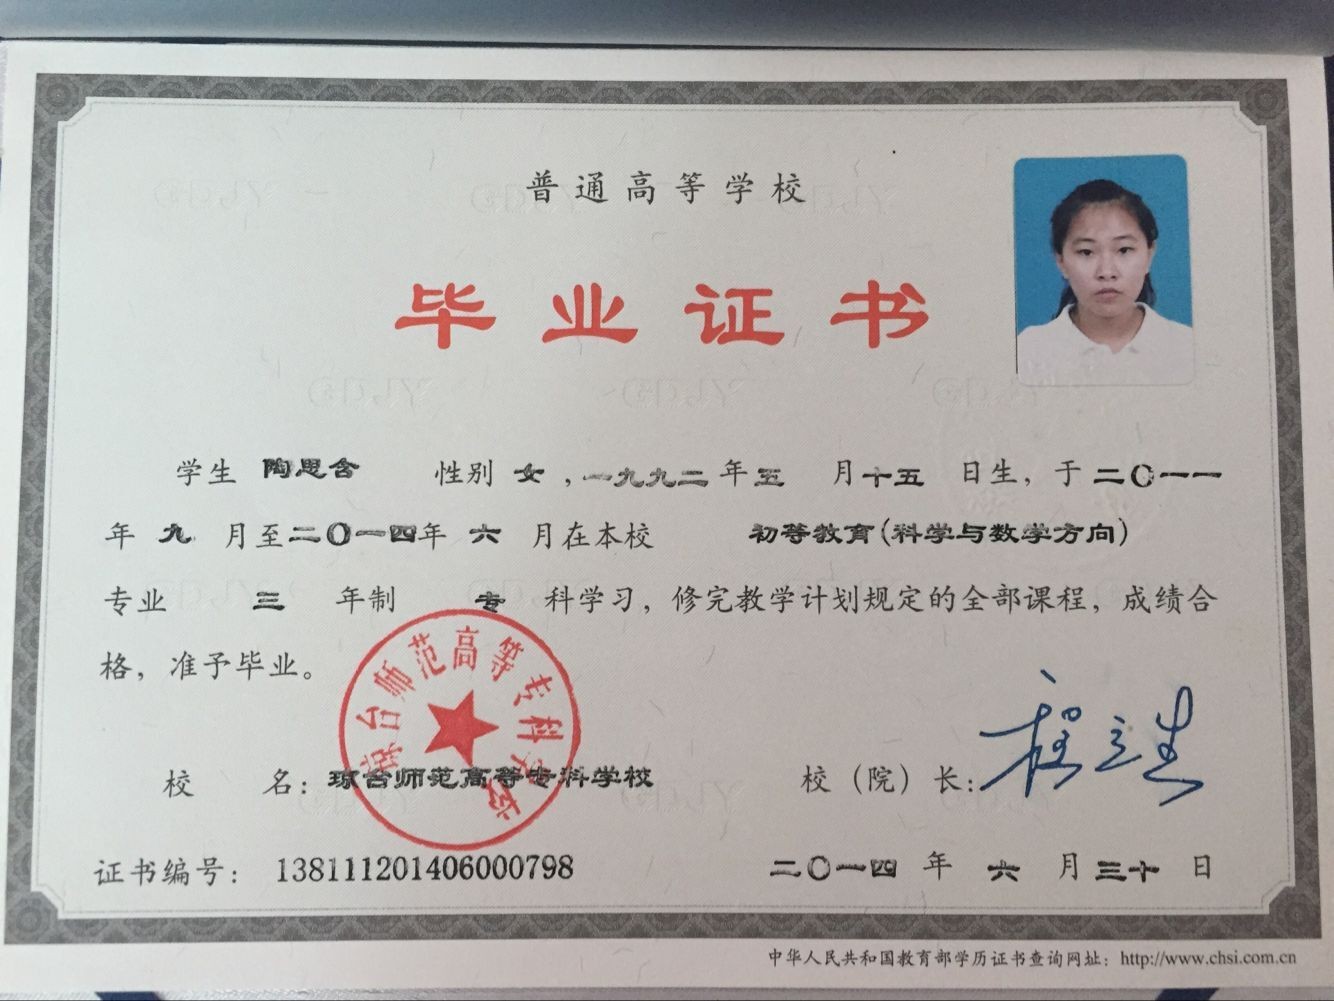 普通高等学校
毕业证书
学生 陶思含 性别 女，一九九二年五月十五日生，于二〇一一
年九月至二〇一四年六月在本校 初等教育(科学与数学方向)
专业 三 年制 专 科学习，修完教学计划规定的全部课程，成绩合
格，准予毕业。
琼台师范高等专科学校
校 名：琼台师范高等专科学校 校（院）长：程立生
证书编号：138111201406000798 二〇一四年六月三十日
中华人民共和国教育部学历证书查询网址：http://www.chsi.com.cn